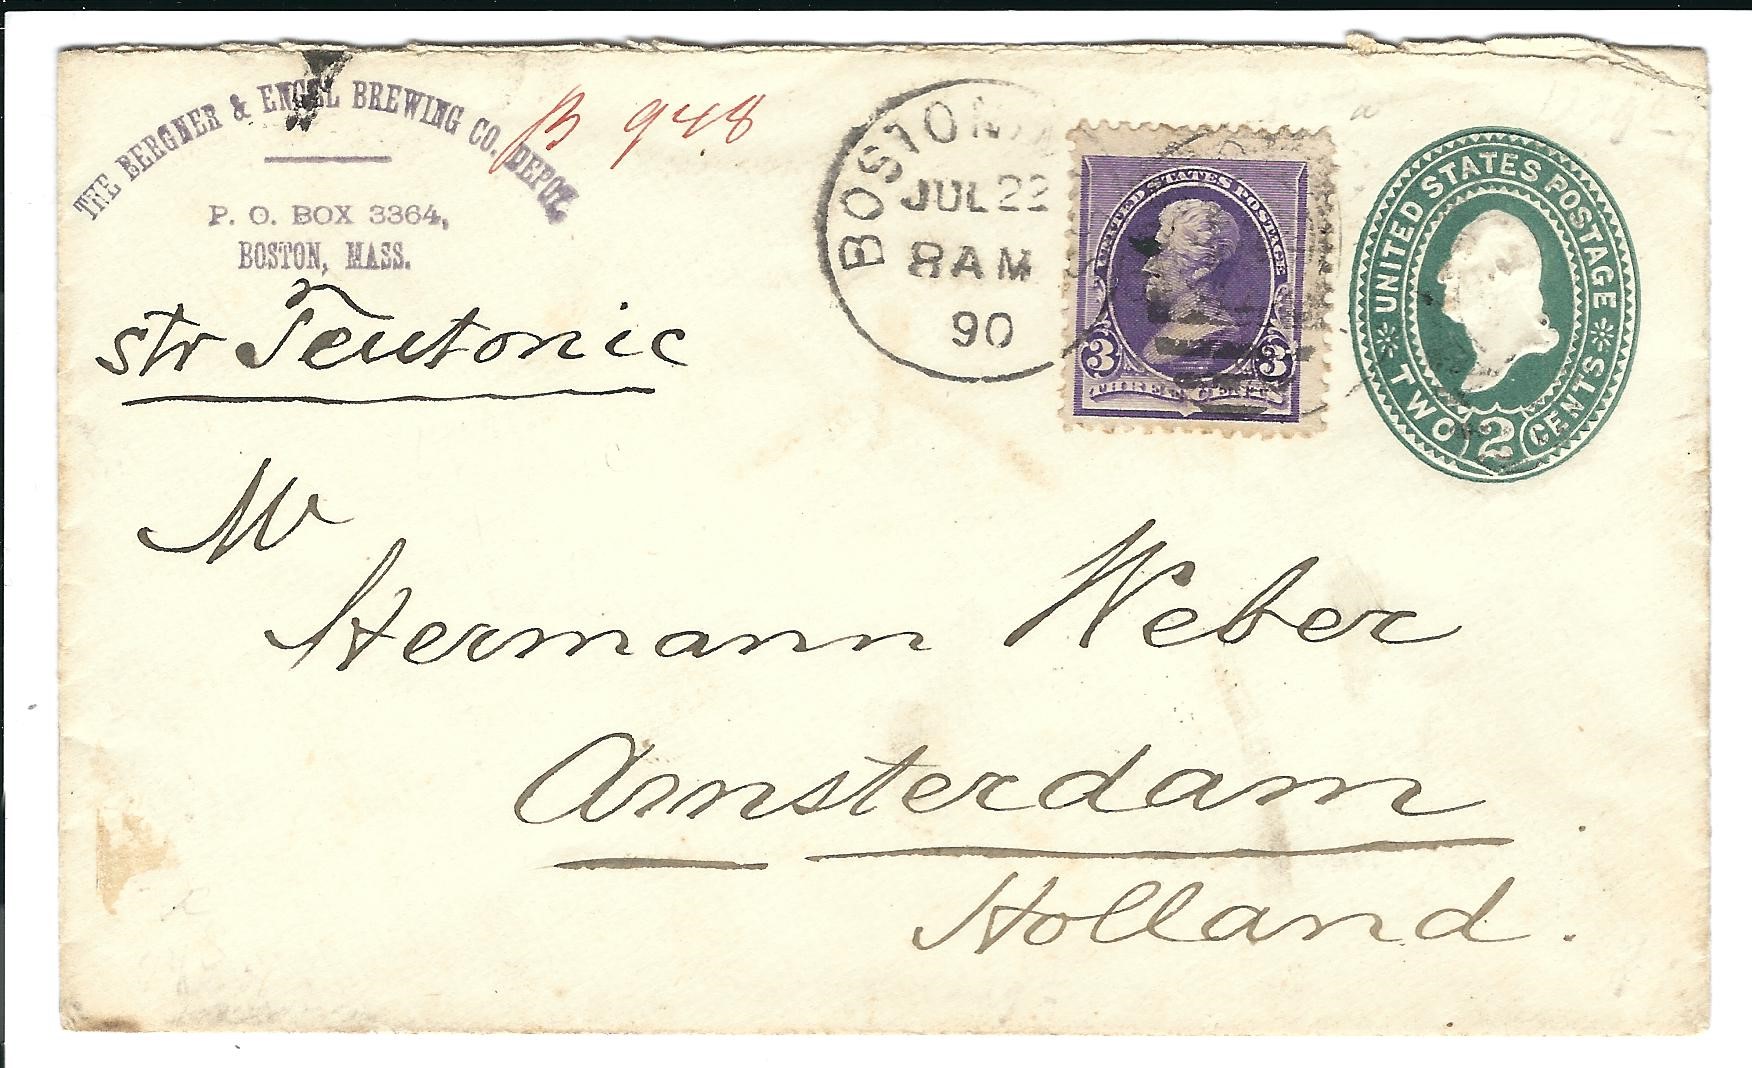 THE BERGNER & ENGEL BREWING CO. DEPOT,
P. O. BOX 3364,
BOSTON, MASS.
B 948
BOSTON
JUL 22
8 AM
90
UNITED STATES POSTAGE
3 3
THREE CENTS
UNITED STATES POSTAGE
TWO 2 CENTS
str Teutonic
Mr
Hermann Weber
Amsterdam
Holland.